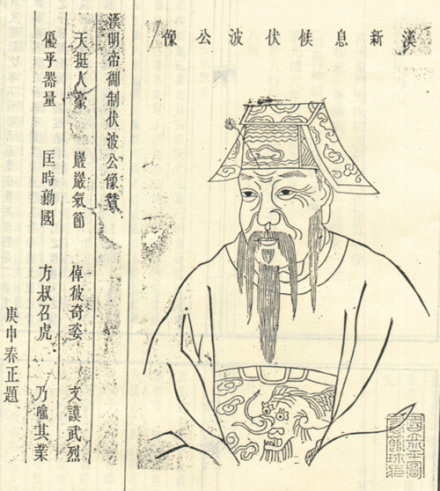 漢新息候伏波公像
漢明帝御制伏波公像贊
天挺人豪 嚴嚴氣節 倬彼奇姿 文謨武烈
優乎器量 匡時國 方叔召虎 乃其業
庚申春正題